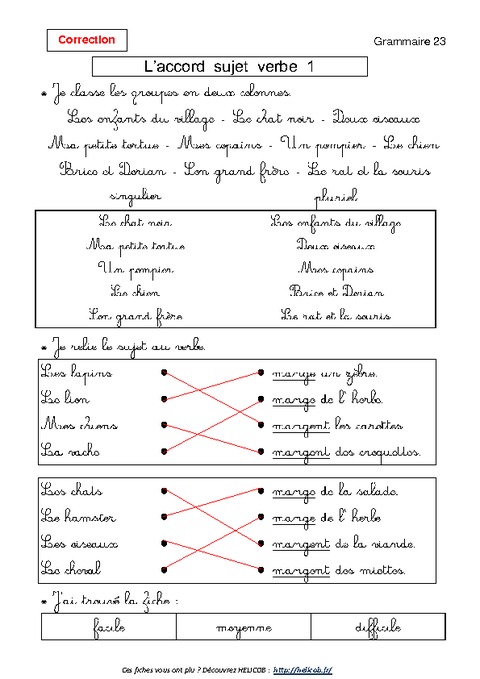 Correction
Grammaire 23
L'accord sujet verbe 1
* Je classe les groupes en deux colonnes.
Les enfants du village - Le chat noir - Deux oiseaux
Ma petite tortue - Mes copains - Un pompier - Le chien
Brice et Dorian - Son grand frère - Le rat et la souris
singulier pluriel
Le chat noir Les enfants du village
Ma petite tortue Deux oiseaux
Un pompier Mes copains
Le chien Brice et Dorian
Son grand frère Le rat et la souris
* Je relie le sujet au verbe.
Les lapins mange un zèbre.
Le lion mange de l'herbe.
Mes chiens mangent les carottes.
La vache mangent des croquettes.
Les chats mange de la salade.
Le hamster mange de l'herbe
Les oiseaux mangent de la viande.
Le cheval mangent des miettes.
* J'ai trouvé la fiche :
facile moyenne difficile
Ces fiches vous ont plu ? Découvrez HELICOB : http://helicob.fr/